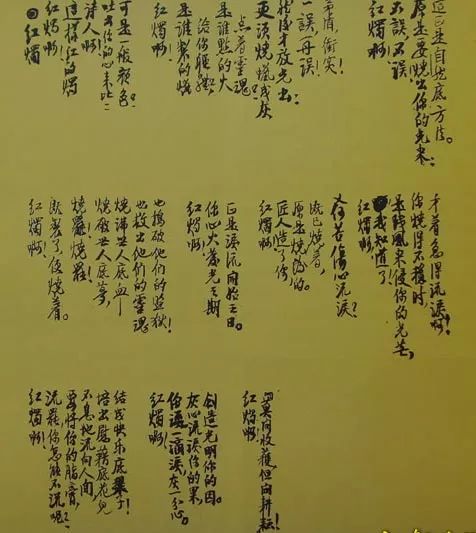 红烛
红烛啊!
这样红的烛!
诗人啊!
吐出你的心来比比
可是一般颜色?
红烛啊!
是谁制的蜡
给你躯体
是谁点的火
点着灵魂
更须烧蜡成灰
然后才放光出?
一误再误!
矛盾!冲突!
不误不误!
原是要烧出你的光来
这正是自然底方法。
红烛啊!
既制了便烧着!
烧罢烧罢!
烧破世人底梦
烧沸世人底血
也救出他们的灵魂
也捣破他们的监狱!
红烛啊!
你心火发光之期
正是泪流开始之日。
红烛啊!
匠人造了你
原是为烧的。
既已烧着
又何苦伤心流泪?
我知道了!
是残风来侵你的光芒
你烧得不稳时
才着急得流泪啊!
红烛啊!
流罢你怎能不流呢?
要将你的脂膏
不息地流向人间
培出慰藉底花儿
结成快乐底果子!
红烛啊!
你流一滴泪灰一分心。
灰心流泪你的果
创造光明你的因。
红烛啊!
莫问收获但问耕耘!